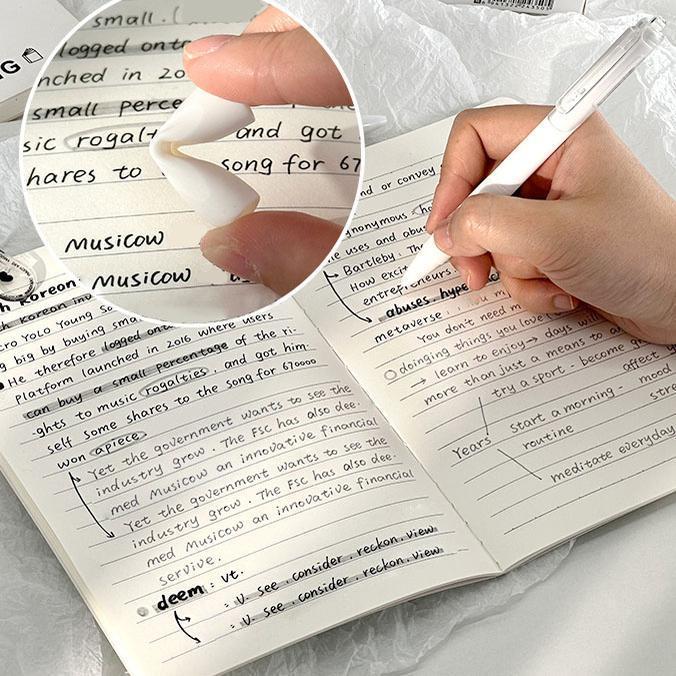 small . (
logged onto
nched in 20
small perce
sic royalt and got
hares to song for 67
Musicow
Musicow
h Korean
h Korean inv
cro YOLO Young So
g big by buying sma
He therefore logged onto
Platform launched in 2016 where users
can buy a small percentage of the ri-
-ghts to music rogalties , and got him-
self some shares to the song for 670000
won apiece
Yet the government wants to see the
industry grow . The FSC has also dee-
med Musicow an innovative financial
Yet the government wants to see the
industry grow . The FSC has also dee-
med Musicow an innovative financial
servive .
deem : vt.
: V. see . consider . reckon . view
: V. see . consider . reckon . view
nd or convey
gnonymous
he uses and abu
Bartleby . Th
How excit
entrepreneurs
abuses . hype
metaverse
You don't need m
doinging things you love
→ learn to enjoy → days will
more than just a means to an
try a sport - become
affect
Years
start a morning - mood
routine stre
meditate everyday